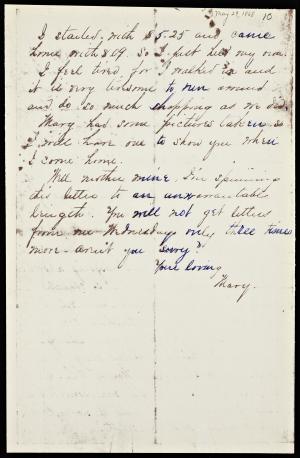 May 29, 1868
10
I started with $5.25 and came
home with 8.19. So I just held my own.
I feel tired for I walked in and
it is very tiresome to run around
and do so much shopping as we did.
Mary had some pictures taken so
I will have one to show you when
I come home.
Well mother mine I'm spinning
this letter to an unwarrantable
length. You will not get letters
from me Wednesdays only three times
more - aren't you sorry?
Your loving
Mary.